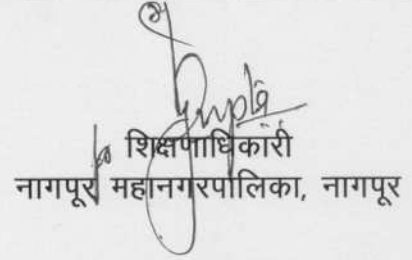 Gupta
शिक्षणाधिकारी
नागपूर महानगरपालिका, नागपूर